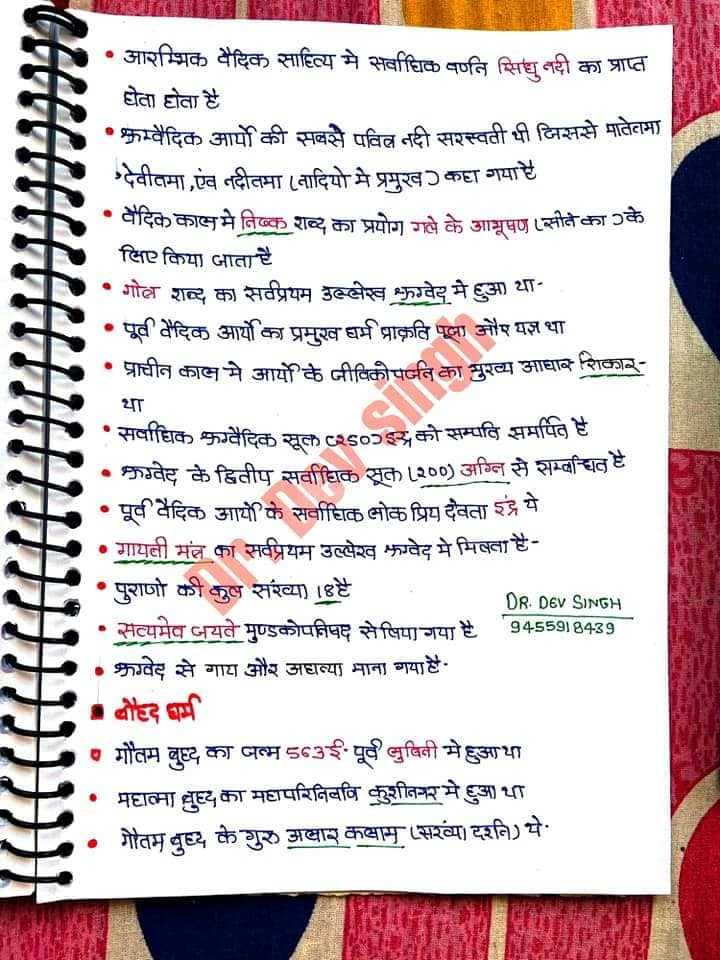 • आरम्भिक वैदिक साहित्य मे सर्वाधिक वर्णन सिंधु नदी का प्राप्त
होता होता है
• ऋग्वैदिक आर्यो की सबसे पवित्र नदी सरस्वती थी जिससे मातेतमा
देवीतमा ,एंव नदीतमा (नादियो मे प्रमुख) कहा गया है
• वैदिक काल मे निष्क शब्द का प्रयोग गले के आभूषण (सोने का) के
लिए किया जाता है
• गोत्र शब्द का सर्वप्रथम उल्लेख ऋग्वेद मे हुआ था-
• पूर्व वैदिक आर्यो का प्रमुख धर्म प्राकृति पूजा और यज्ञ था
• प्राचीन काल मे आर्यो के जीविकोपर्जन का मुख्य आधार शिकार-
था
• सर्वाधिक ऋग्वैदिक सूक्त (250) इन्द्र को सम्पति समर्पित है
• ऋग्वेद के द्वितीय सर्वाधिक सूक्त (200) अग्नि से सम्बन्धित है
• पूर्व वैदिक आर्यो के सर्वाधिक लोक प्रिय देवता इंद्र थे
• गायत्री मंत्र का सर्वप्रथम उल्लेख ऋग्वेद मे मिलता है-
• पुराणो की कुल संख्या 18 है
DR. DEV SINGH
• सत्यमेव जयते मुण्डकोपनिषद से लिया गया है
9455918439
• ऋग्वेद से गाय और अघन्या माना गया है.
बौद्ध धर्म
गौतम बुद्ध का जन्म 563 ई. पूर्व लुंबिनी मे हुआ था
• महात्मा बुद्ध का महापरिनिर्वाण कुशीनगर मे हुआ था
• गौतम बुद्ध के गुरु अलार कलाम (सख्या दर्शन) थे.
Dr. Dev Singh